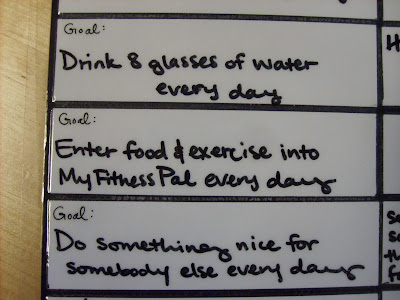 Goal:
Drink 8 glasses of water
every day
Goal:
Enter food & exercise into
MyFitnessPal every day
Goal:
Do something nice for
somebody else every day